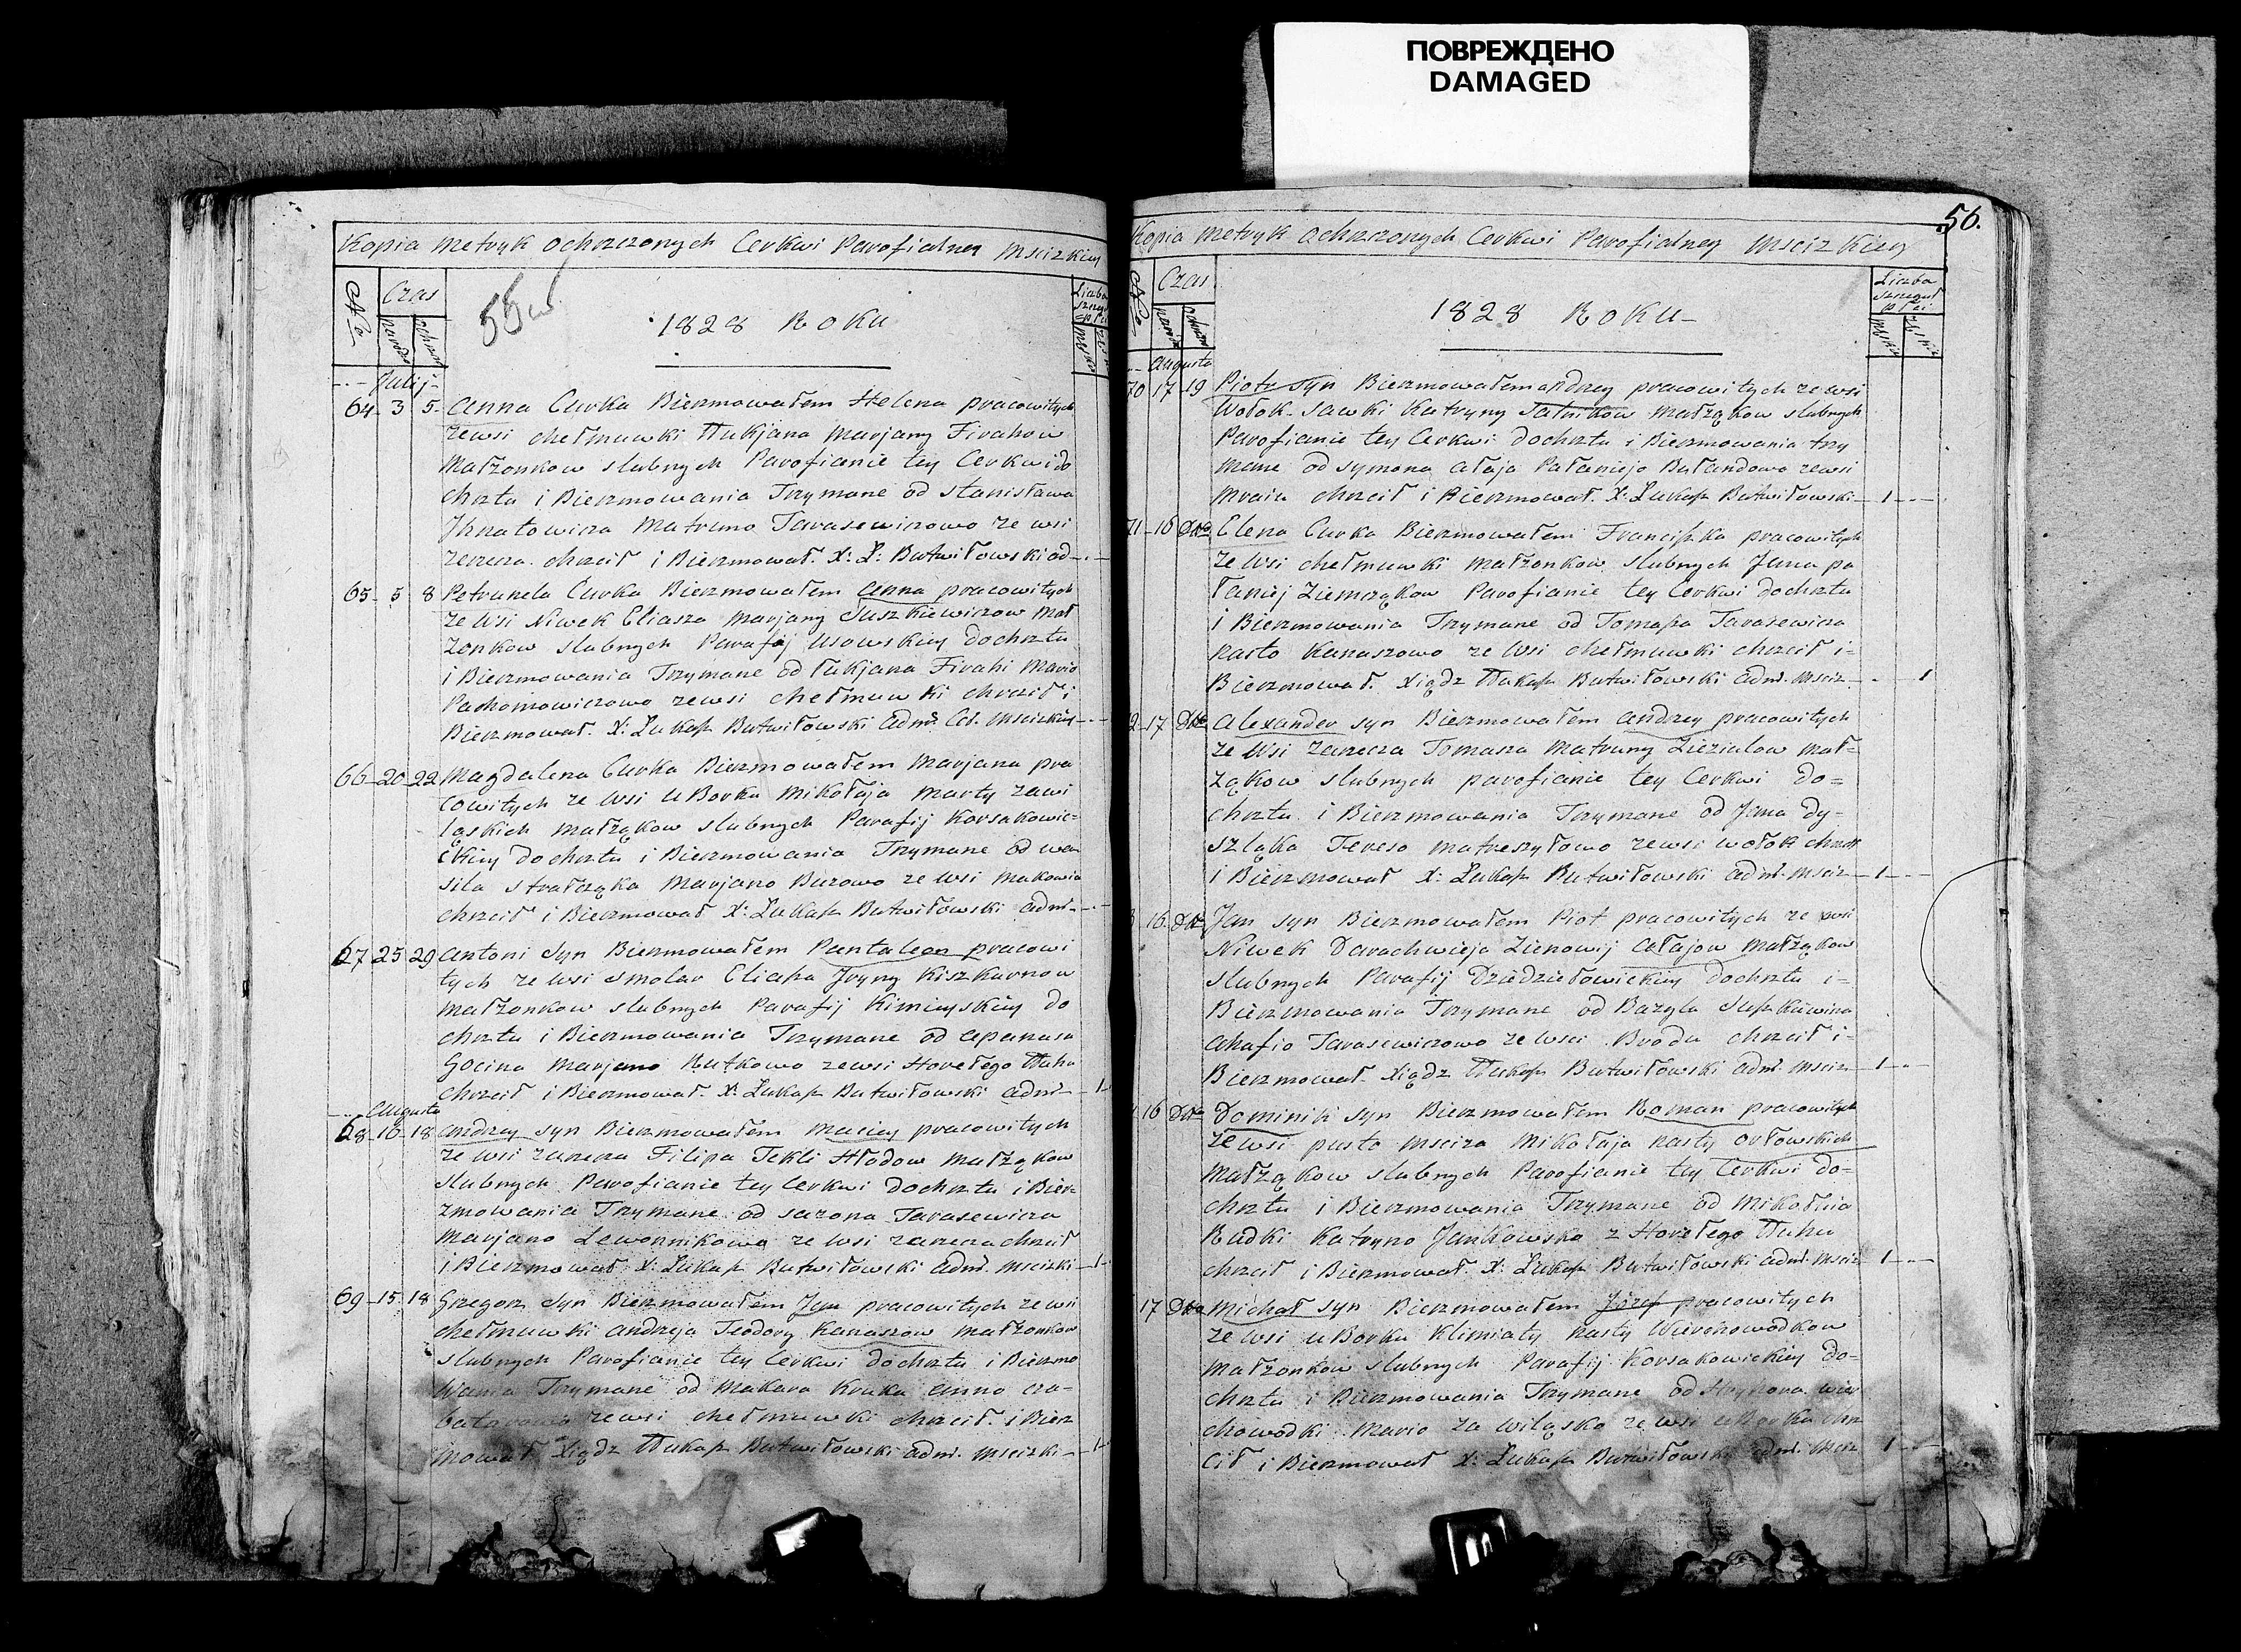 ПОВРЕЖДЕНО
DAMAGED
Kopia Metryk ochrzczonych Cerkwi Parofialney Mscizkiey
No
Czas
Liczba
55
1828 Roku
Julij
64 3 5 Anna Curka Bierzmowałem Helena pracowitych
zewsi chełmuwki Łukjana Marjany Firahow
Małżonkow slubnych Parofianie tey Cerkwi do
chrztu i Bierzmowania Trzymane od Stanisława
Jhnatowicza Matruno Tarasewiczowo ze wsi
zarecza chrzcił i Bierzmował. X: Ł: Butwiłowski ad
65 5 8 Petrunela Curka Bierzmowałem Anna pracowitych
ze wsi Niwek Eliasza Marjany Juszkiewiczow Mał
żonkow slubnych Parafij Usowskiey do chrztu
i Bierzmowania Trzymane od Łukjana Firahi Mario
Pachomowiczowo zewsi chełmuwki chrzcił i
Bierzmował. X: Łukasz Butwiłowski Adm. Mscizkiey
66 20 22 Magdalena Curka Bierzmowałem Marjana pra
cowitych ze wsi uBorku Mikołaja Marty Zawi
ląskich małżąkow slubnych Parafij Korsakowic
kiey do chrztu i Bierzmowania Trzymane od wa
sila Strałcząka Marjano Burowo ze wsi Makowia
chrzcił i Bierzmował X: Łukasz Butwiłowski adm
67 25 29 Antoni Syn Bierzmowałem Pantaleon pracowi
tych ze wsi Smolar Eliasza Jryny Kiszkurnow
Małżonkow slubnych Parafij Kimieyskiey do
chrztu i Bierzmowania Trzymane od Apanasa
Gocina Marjano Rutkowo zewsi Horełego Łuha
chrzcił i Bierzmował. X: Łukasz Butwiłowski adm 1
Augusta
68 16 18 Andrzey syn Bierzmowałem Maciey pracowitych
ze wsi zarecza Filipa Tekli Hłodow małżąkow
slubnych Parofianie tey Cerkwi do chrztu i Bier=
zmowania Trzymane od Sazona Tarasewicza
Marjano Lewonnikowo ze wsi zarecza chrzcił
i Bierzmował X: Łukasz Butwiłowski Adm. Mscizki 1
69 15 18 Grzegorz Syn Bierzmowałem Jan pracowitych ze wsi
chełmuwki Andrzeja Teodory Kanaszow małżonkow
slubnych Parofianie tey Cerkwi do chrztu i Bierzmo
wania Trzymane od Makara Kruka Anno
zewsi chełmuwki chrzcił i Bierz
mował Xiądz Łukasz Butwiłowski adm. Mscizki 1
56.
Kopia Metryk ochrzczonych Cerkwi Parofialney Mscizkiey
No
Czas
Liczba
1828 Roku
Augusta
70 17 19 Piotr syn Bierzmowałem Andrzey pracowitych ze wsi
Wołok Sawki Katryny Salnikow małżąkow slubnych
Parofianie tey Cerkwi do chrztu i Bierzmowania trzy
mane od Symona Ałaja Pałaniejo Bułandowo zewsi
Mraiu chrzcił i Bierzmował. X: Łukasz Butwiłowski 1
71 16 Dto Elena Curka Bierzmowałem Franciszka pracowitych
ze wsi chełmuwki małżonkow slubnych Jana pa
łaniej Ziemcząkow Parofianie tey Cerkwi do chrztu
i Bierzmowania Trzymane od Tomasza Tarasewicza
Nasto Kanaszowo ze wsi chełmuwki chrzcił i
Bierzmował. Xiądz Łukasz Butwiłowski Adm. Msciz. 1
2 17 Dto Alexander syn Bierzmowałem Andrzey pracowitych
ze wsi zarecza Tomasza Matruny Ziezialow mał=
żąkow slubnych parofianie tey Cerkwi do=
chrztu i Bierzmowania Trzymane od Jana Dy=
szląka Tereso Matreszyłowo zewsi Wołok chrzcił
i Bierzmował X: Łukasz Butwiłowski adm. Msciz 1
3 16 Dto Jan syn Bierzmowałem Piot pracowitych ze wsi
Niwek Darachwieja Zienowij Ałajow małżąkow
slubnych Parafij Dziedziełowickiey do chrztu i=
Bierzmowania Trzymane od Bazyla Juszkiewicza
Ahafio Tarasewiczowo ze wsci Brodu chrzcił i=
Bierzmował. Xiądz Łukasz Butwiłowski adm. Msciz 1
16 Dto Dominik syn Bierzmowałem Roman pracowitych
ze wsi pusto Msciza Mikołaja Nasty Orłowskich
małżąkow slubnych Parofianie tey Cerkwi do=
chrztu i Bierzmowania Trzymane od Mikołaia
Rudki Katryno Jankowsko z Horełego Łuhu
chrzcił i Bierzmował. X: Łukasz Butwiłowski adm. Msciz 1
17 Dto Michał syn Bierzmowałem Józef pracowitych
ze wsi uBorku Klimiaty Nasty Wierchowodkow
małżonkow slubnych Parafij Korsakowickiey do=
chrztu i Bierzmowania Trzymane od Hryhora wier
chowodki Mario Zawiląsko ze wsi uBorku chrz
cił i Bierzmował X: Łukasz Butwiłowski adm. Msciz 1